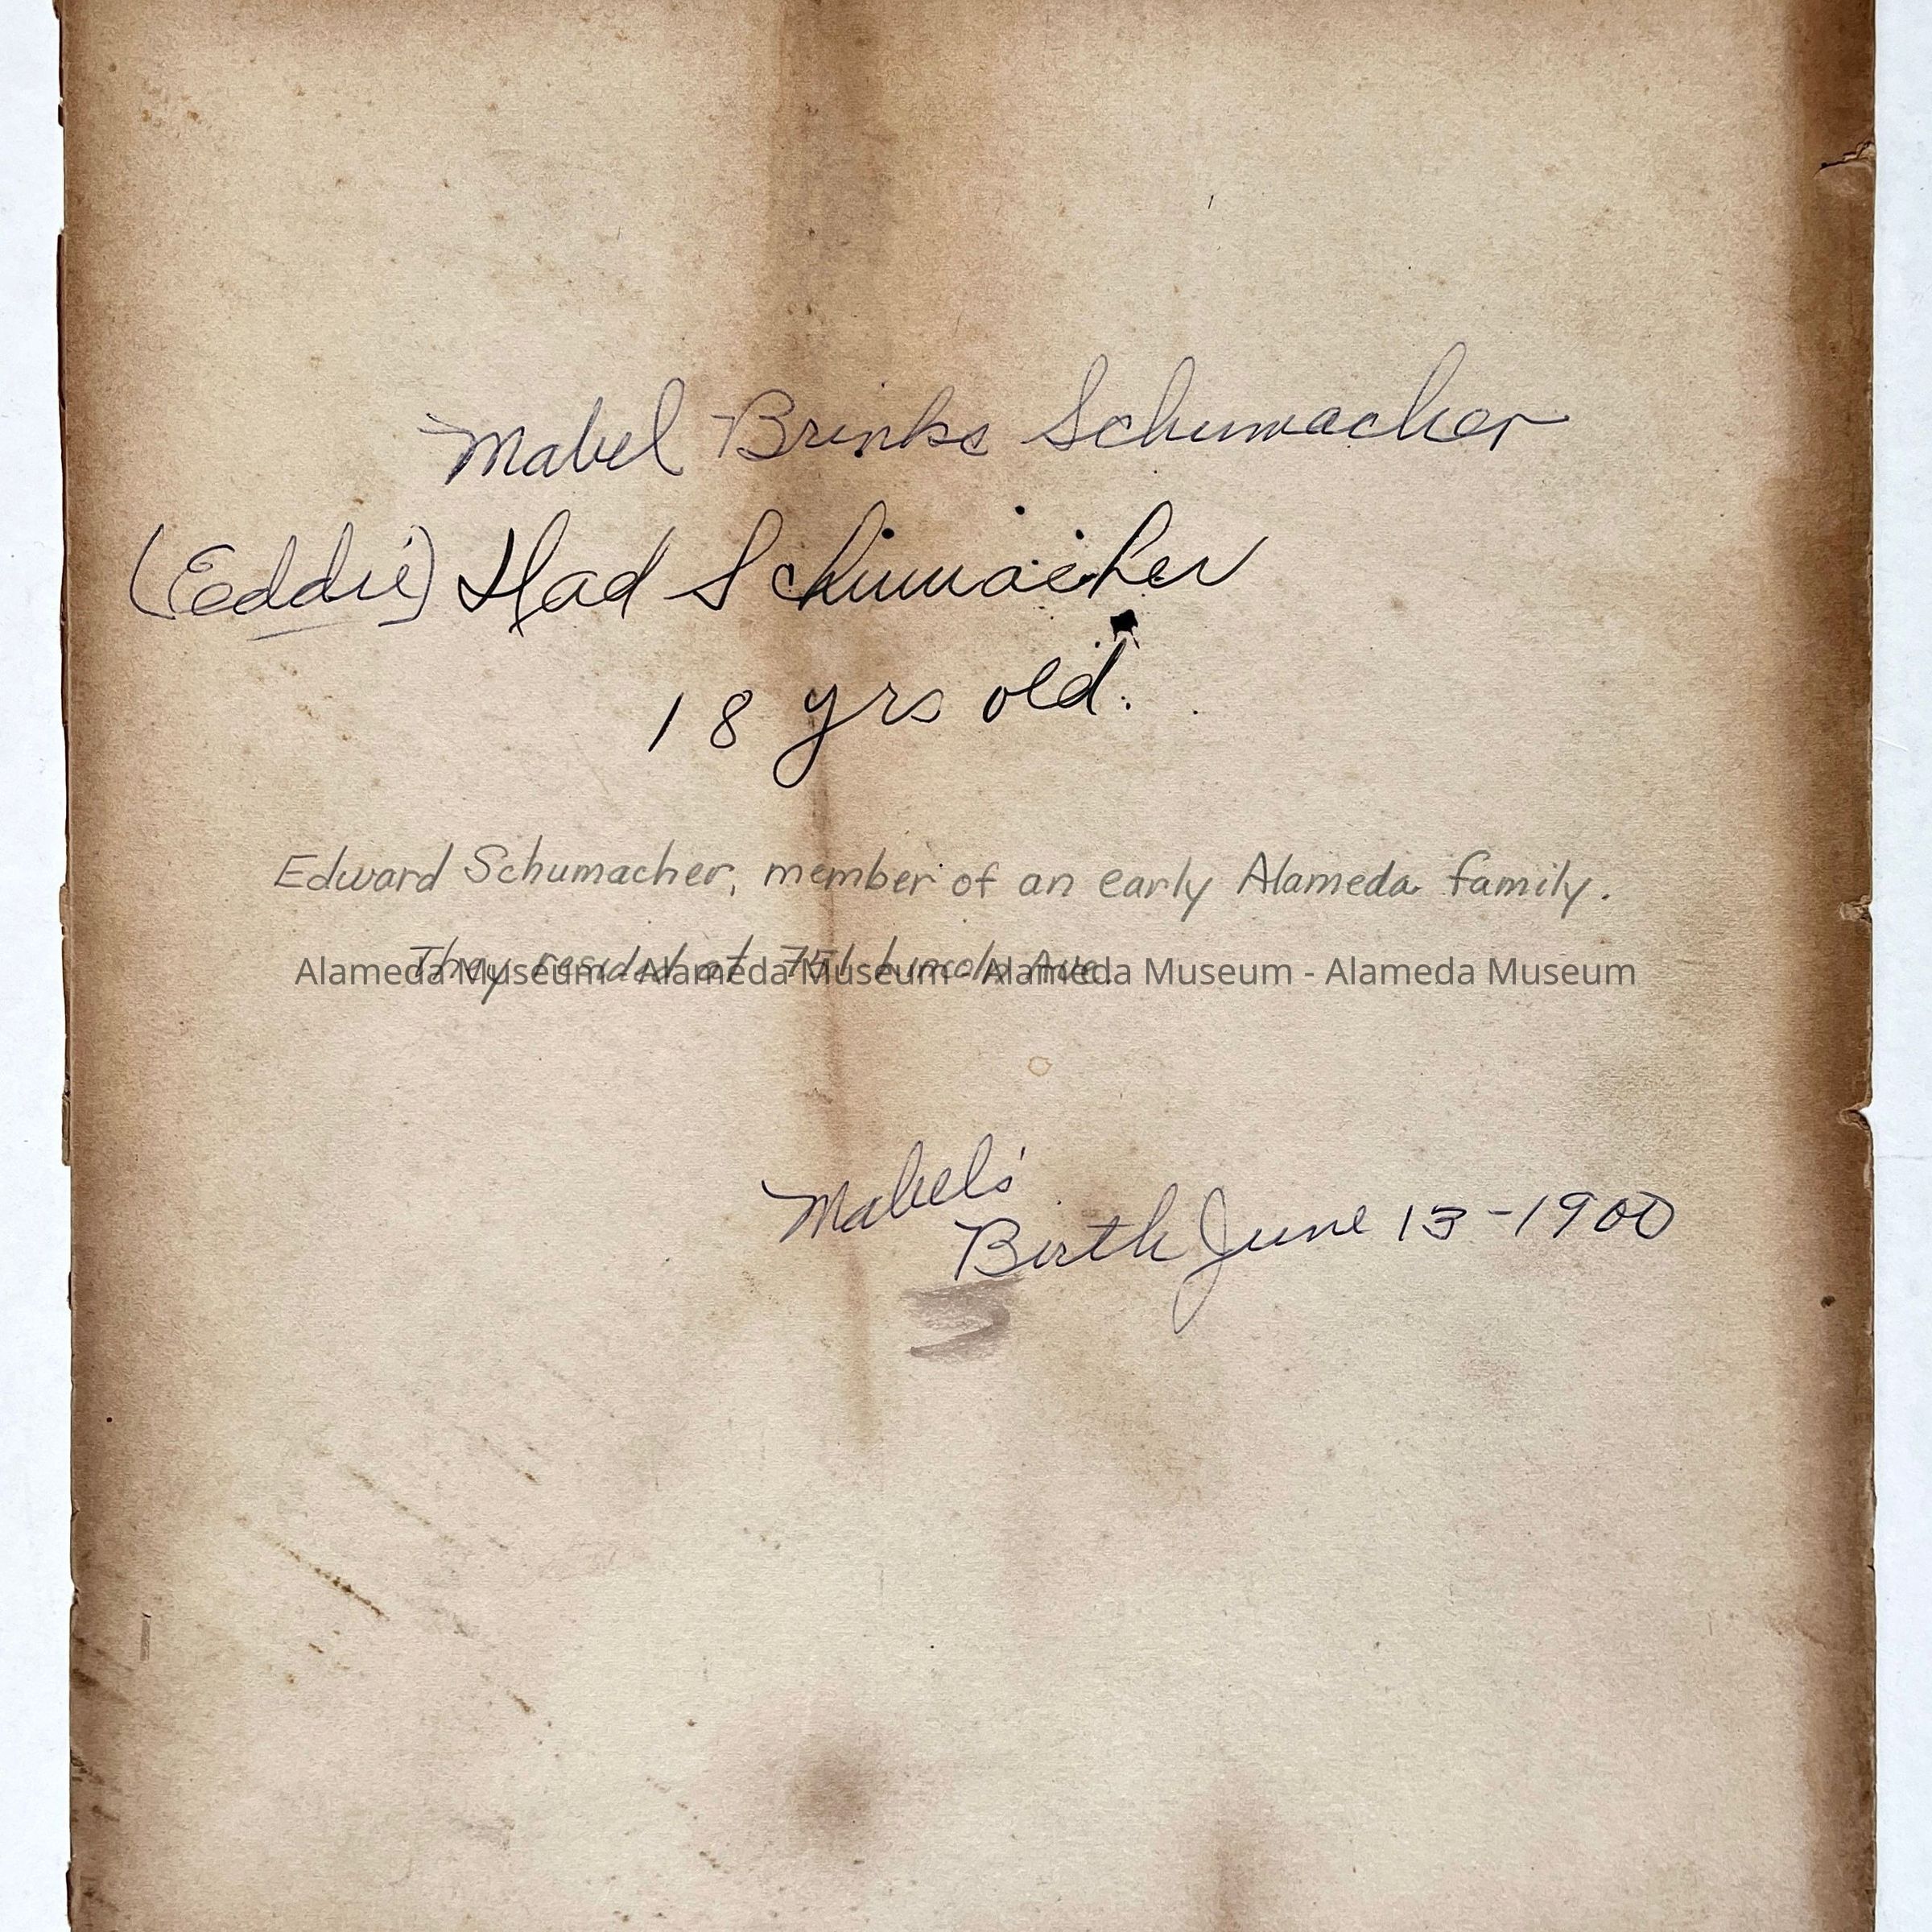 Mabel Brinks Schumacher
(Eddie) Had Schumacher
18 yrs old.
Edward Schumacher, member of an early Alameda family.
They resided at 751 Lincoln Ave.
Alameda Museum - Alameda Museum - Alameda Museum - Alameda Museum
Mabel's
Birth June 13-1900